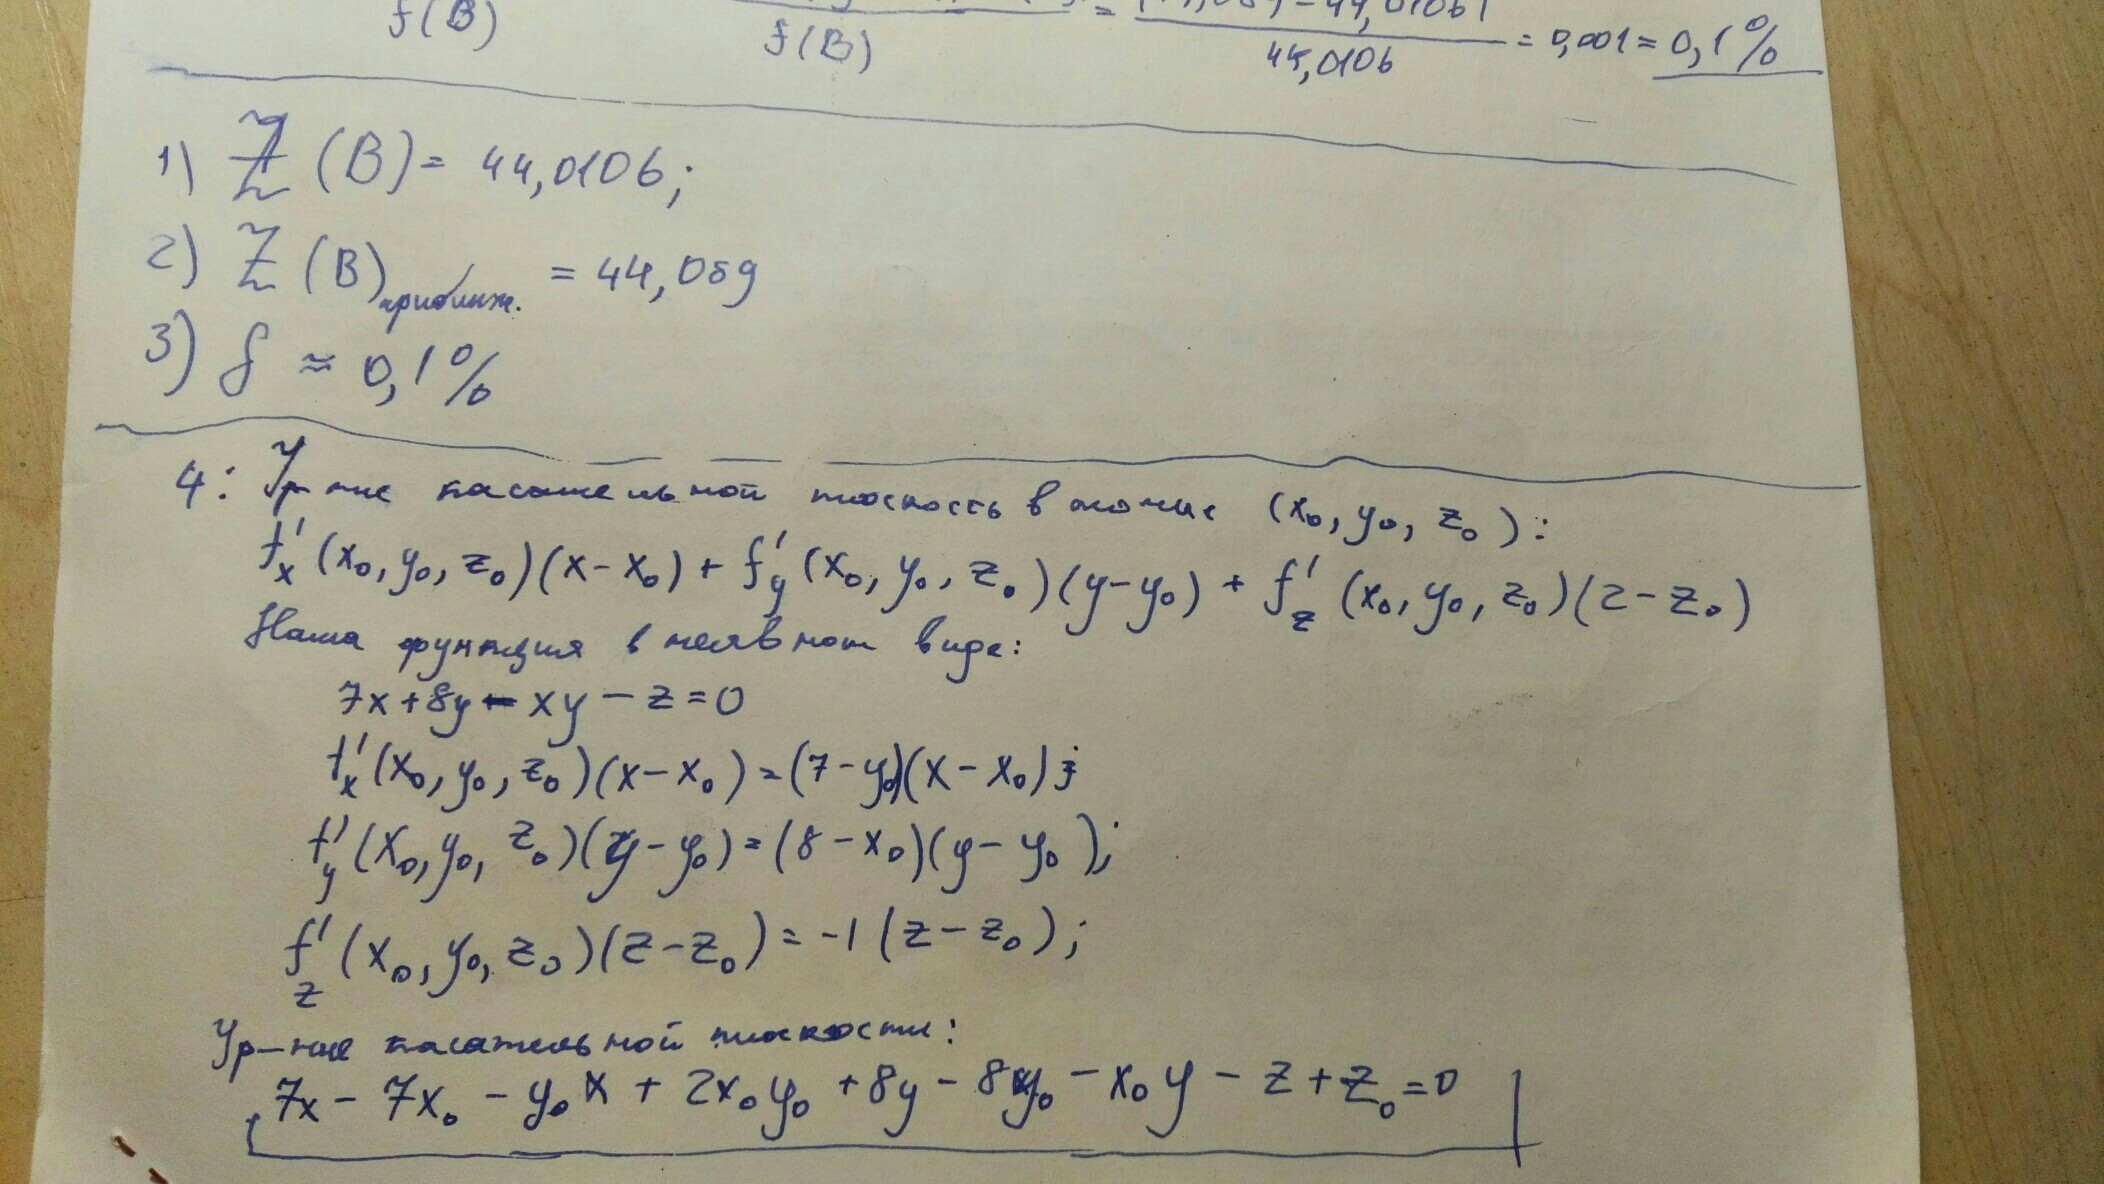 f(B)
f(B)
=
44,0106
= 0,001 = 0,1%
1) Z (B) = 44,0106;
2) Z (B) приближ. = 44,059
3) δ ≈ 0,1%
4: Ур-ние касательной плоскость в точке (x₀, y₀, z₀):
f'ₓ (x₀, y₀, z₀)(x - x₀) + f'y (x₀, y₀, z₀)(y - y₀) + f'z (x₀, y₀, z₀)(z - z₀)
Наша функция в неявном виде:
7x + 8y - xy - z = 0
f'ₓ (x₀, y₀, z₀)(x - x₀) = (7 - y₀)(x - x₀);
f'y (x₀, y₀, z₀)(y - y₀) = (8 - x₀)(y - y₀);
f'z (x₀, y₀, z₀)(z - z₀) = -1 (z - z₀);
Ур-ние касательной плоскости:
7x - 7x₀ - y₀x + 2x₀y₀ + 8y - 8y₀ - x₀y - z + z₀ = 0